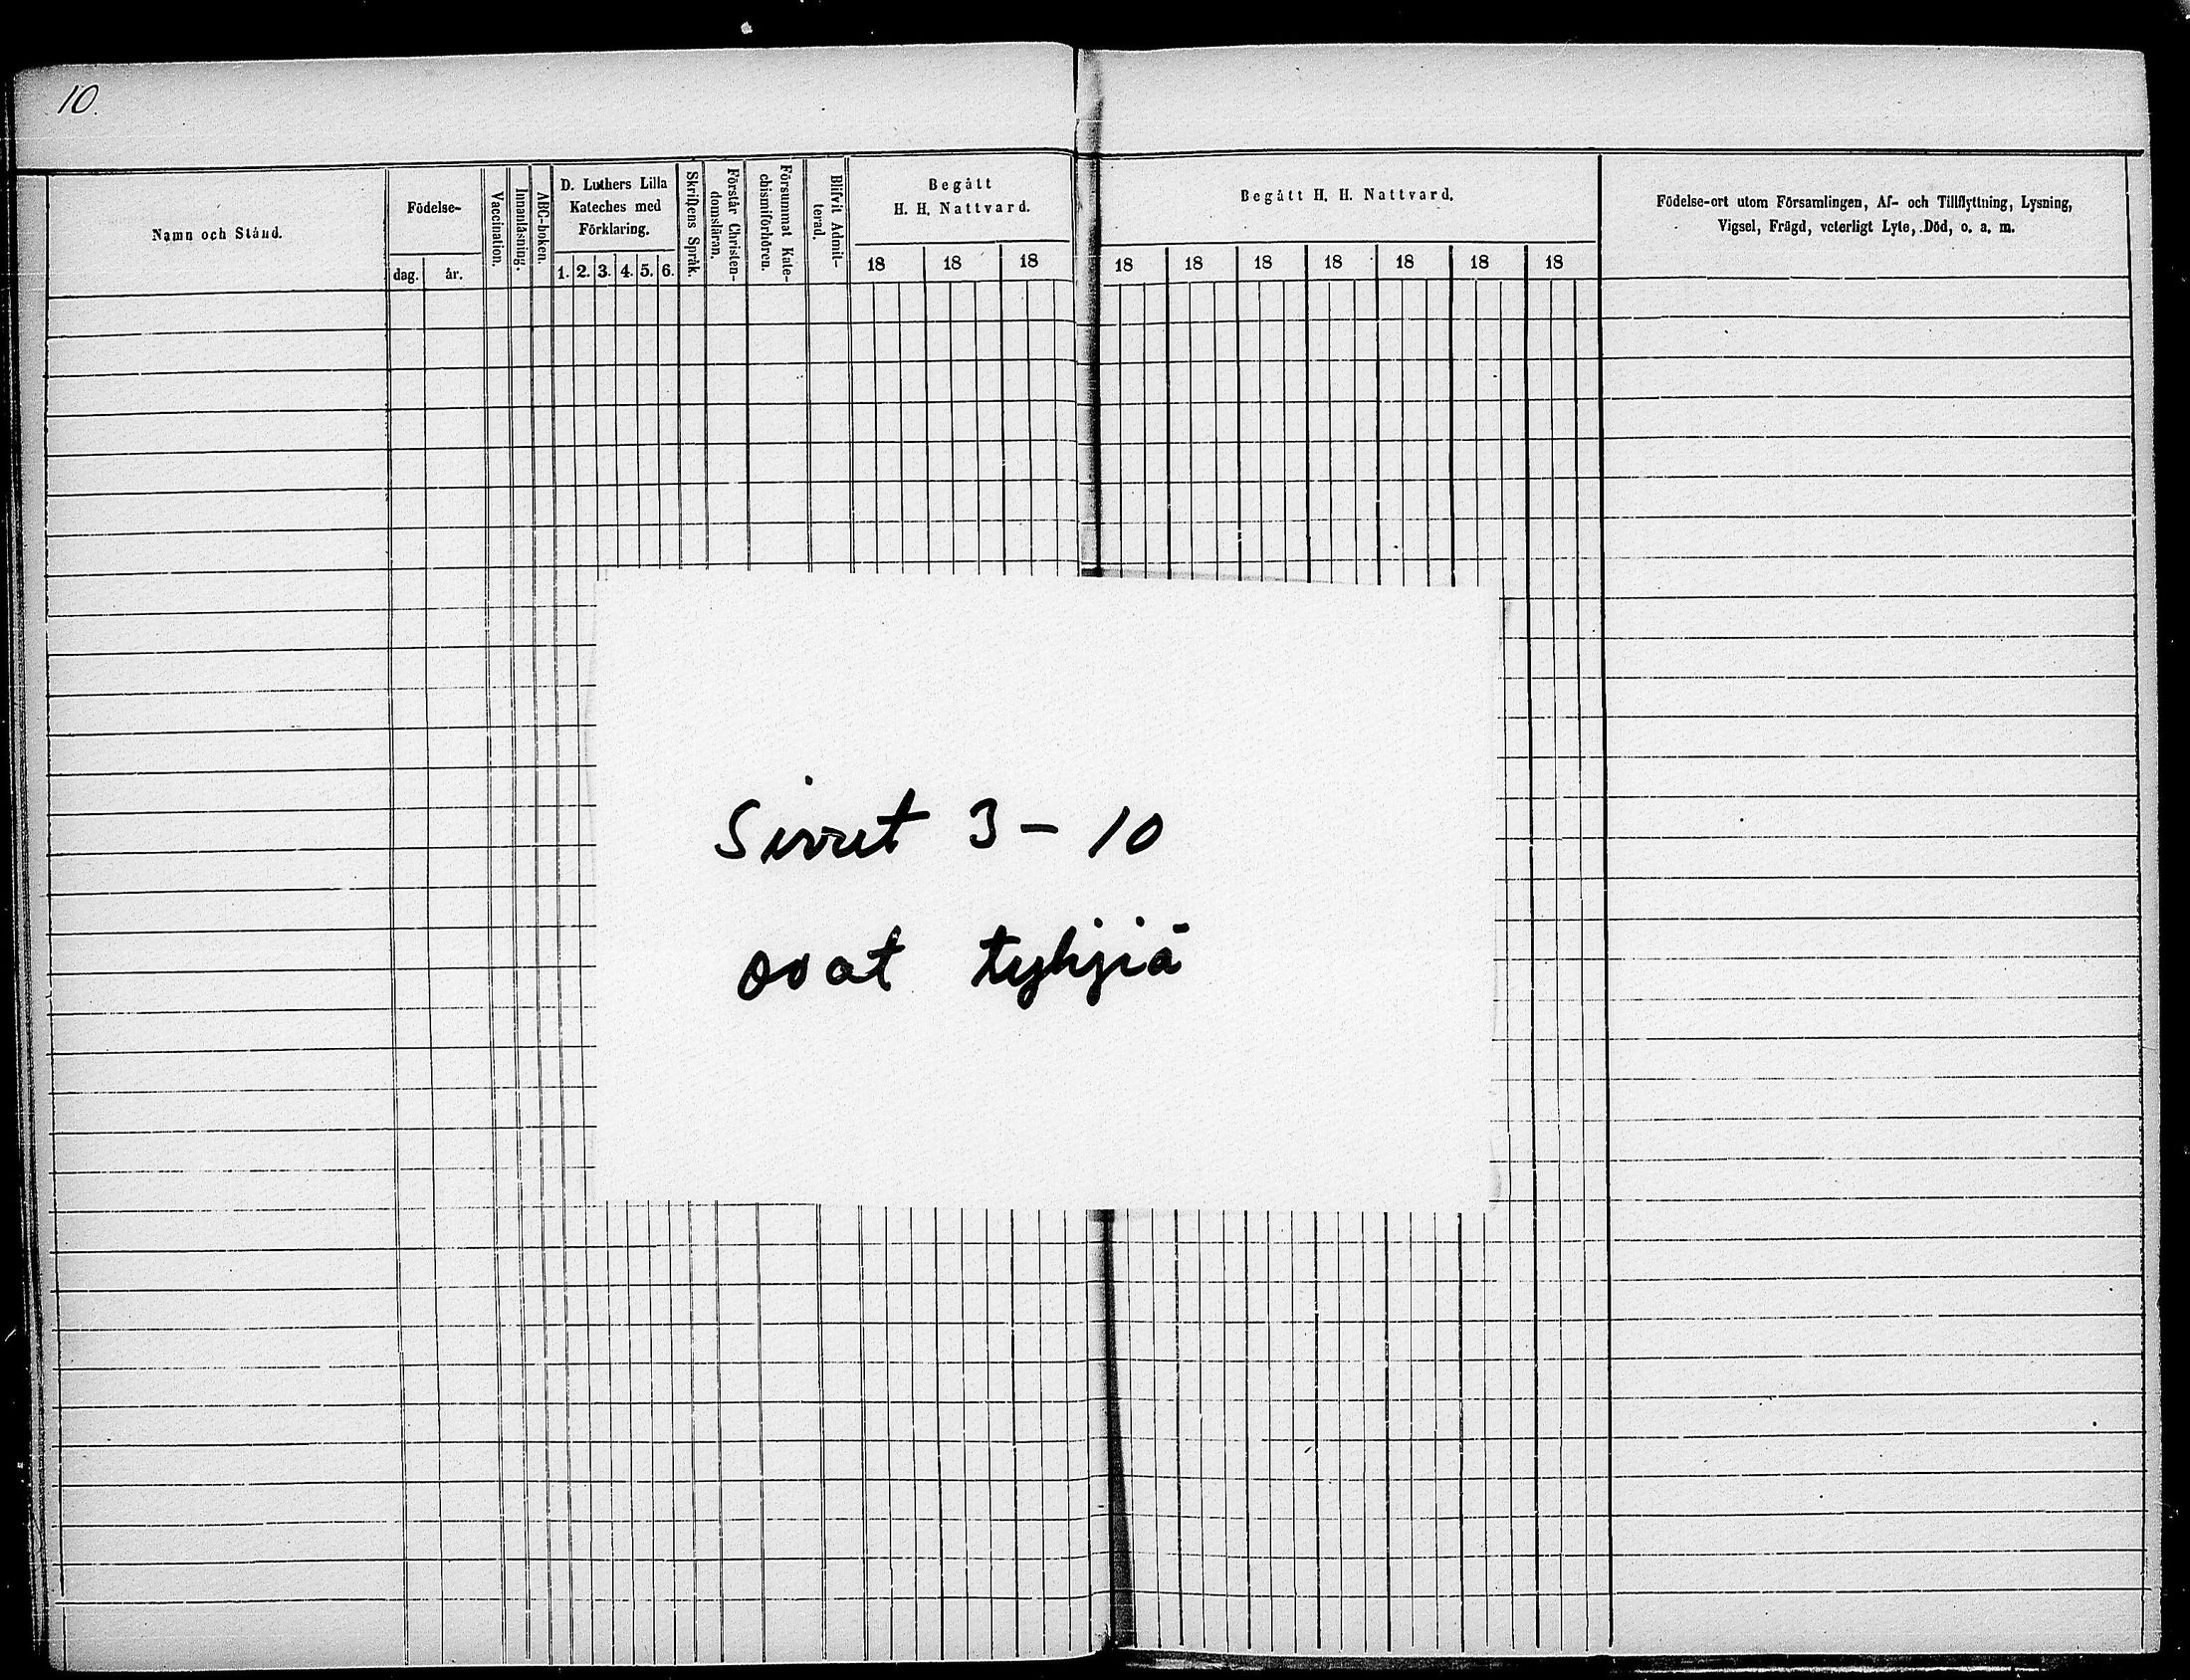 10.
Namn och Stånd.
Födelse-
dag.
år.
Vaccination.
Innanläsning.
ABC-boken.
D. Luthers Lilla
Kateches med
Förklaring.
1. 2. 3. 4. 5. 6.
Skriftens Språk.
Förstår Christen-
domsläran.
Försummat Kate-
chismiförhören.
Blifvit Admit-
terad.
Begått
H. H. Nattvard.
18 18 18
Begått H. H. Nattvard.
18 18 18 18 18 18 18
Födelse-ort utom Församlingen, Af- och Tillflyttning, Lysning,
Vigsel, Frägd, veterligt Lyte, Död, o. a. m.
Sivut 3 – 10
ovat tyhjiä